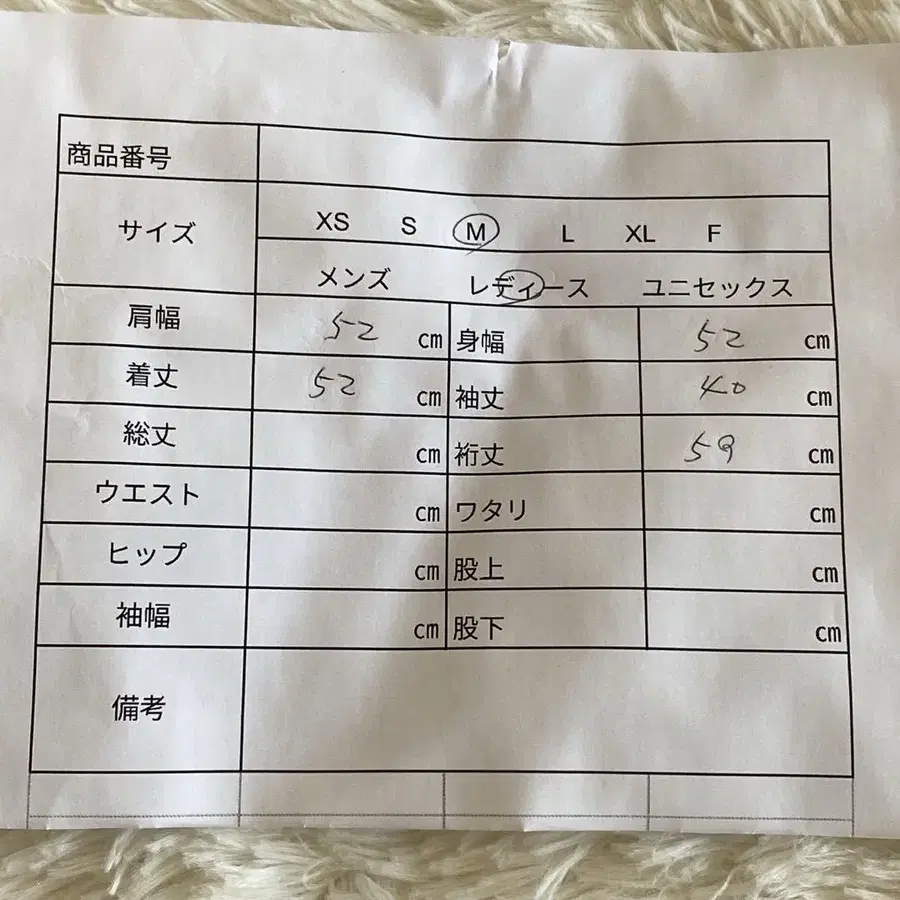 商品番号
サイズ
XS S M L XL F
メンズ レディース ユニセックス
肩幅 52 cm 身幅 52 cm
着丈 52 cm 袖丈 40 cm
総丈 cm 裄丈 59 cm
ウエスト cm ワタリ cm
ヒップ cm 股上 cm
袖幅 cm 股下 cm
備考